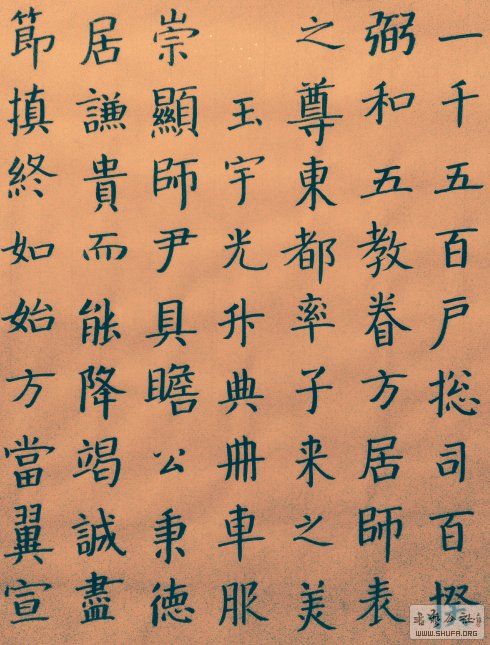 一千五百戸捴司百揆
弼和五教眷方居師表
之尊東都率子来之美
玉宇光升典冊車服
崇顯師尹具瞻公秉徳
居謙貴而能降竭誠盡
節慎終如始方當翼宣
WWW.SHUFA.ORG